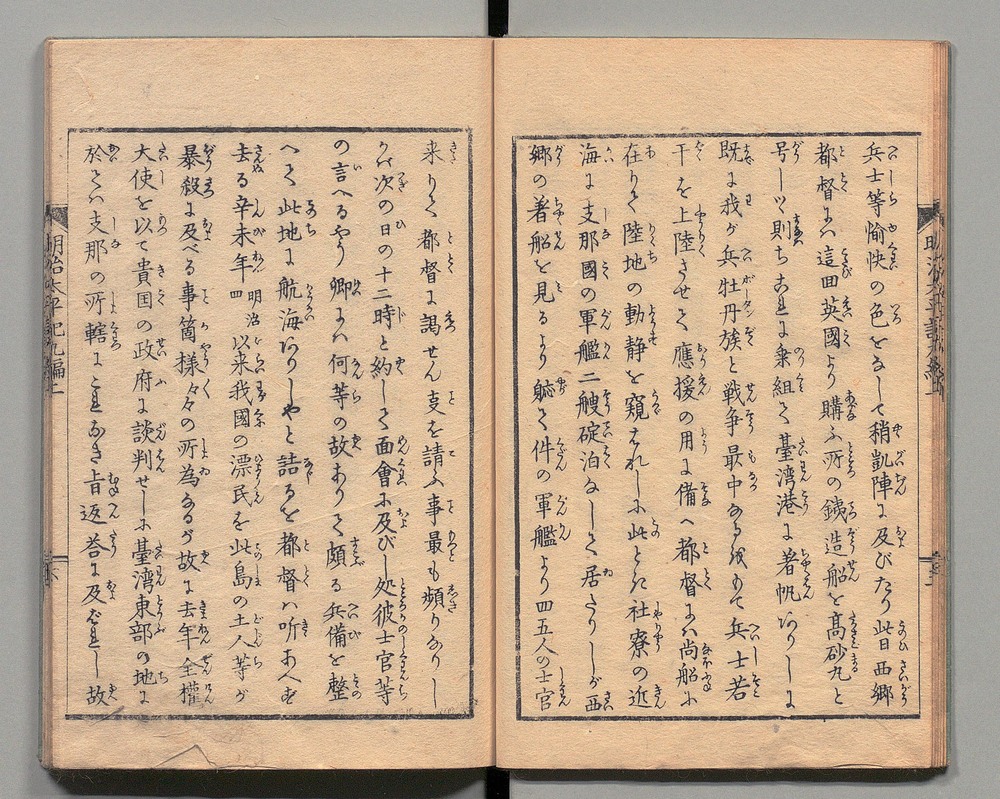 兵士等愉快の色をなして稍凱陣に及びたり此日西郷
都督には這回英國より購ふ所の銕造船を髙砂丸と
号しつ則ちこれに乗組て臺湾港に着帆ありしに
既に我が兵牡丹族と戦争最中なるをもて兵士若
干を上陸させて應援の用に備へ都督には尚船に
在りて陸地の動静を窺はれしに此ときに社寮の近
海に支那國の軍艦二艘碇泊なして居たりしが西
郷の着船を見るより軈て件の軍艦より四五人の士官
来りて都督に謁せん支を請ふ事最も頻りなりし
かば次の日の十二時と約して面會に及びし処彼士官等
の言へるやう卿には何等の故ありて頗る兵備を整
へて此地に航海ありしやと詰るを都督は听あへず
去る辛未年明治四以来我國の漂民を此島の土人等が
暴殺に及べる事箇様々々の所為なるが故に去年全權
大使を以て貴国の政府に談判せしに臺湾東部の地に
於ては支那の所轄にこれなき旨返答に及ばれし故
明治太平記九編上